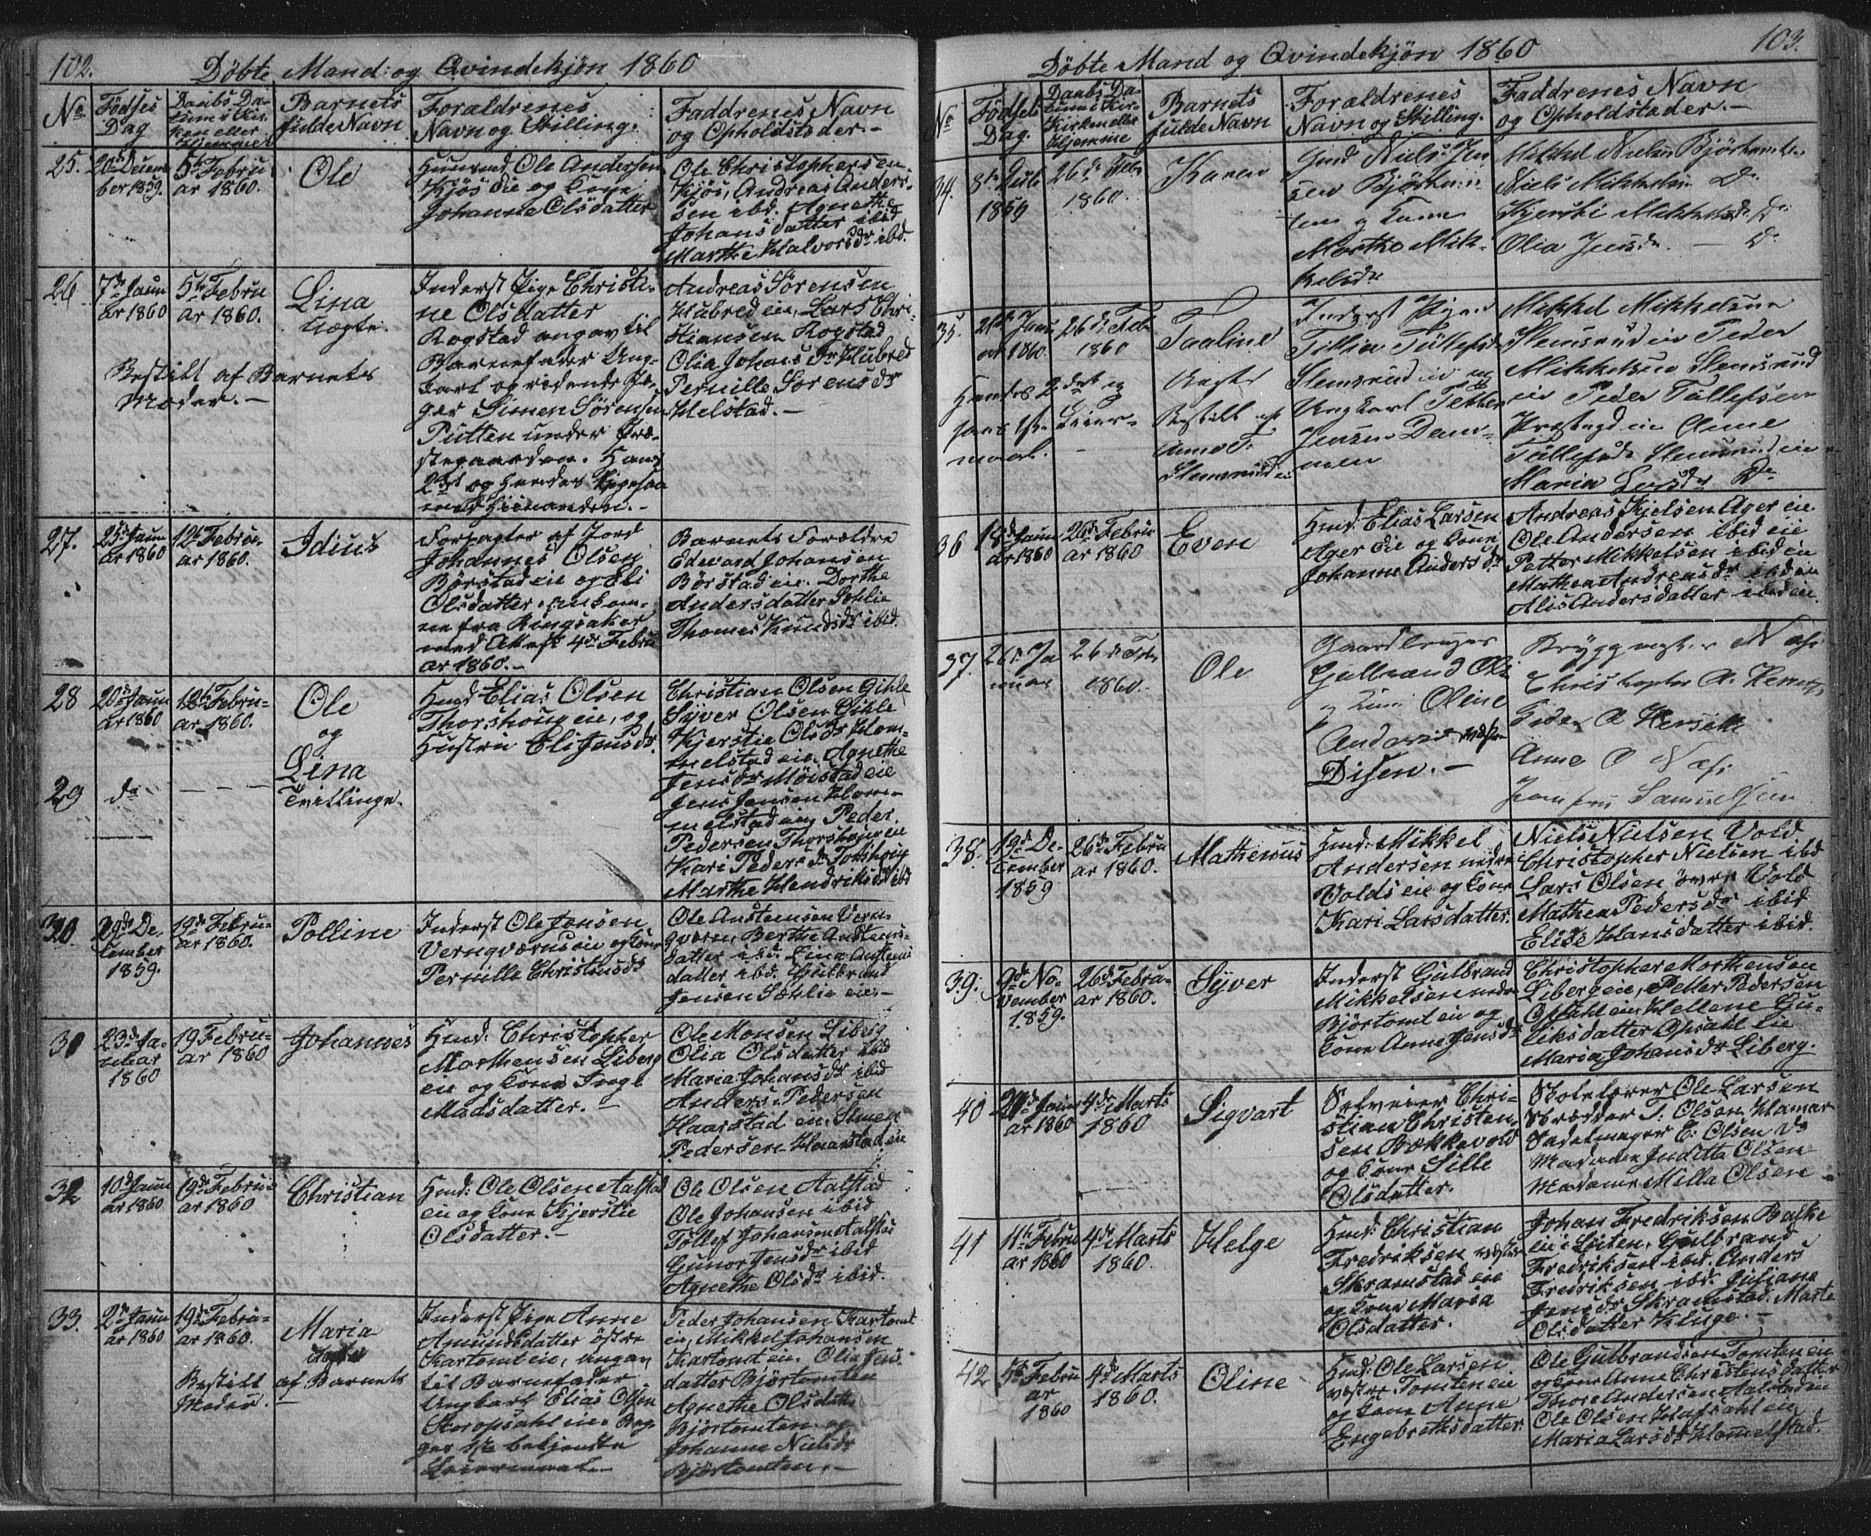 102.
Döbte Mand: og Qvindekjön 1860
No
Födses Dag
Daabs Datum i Kirken eller Hjemmet
Barnets fulde Navn
Foraldrenes Navn og Stilling.
Faddrenes Navn og Opholdstæder.-
25.
20de Decem
ber 1859.
5te Febru
ar 1860.
Ole
Huusmd Ole Andersen
Kjös Eie og Kone
Johanne Olsdatter
Ole Christophersen
Kjös, Andreas Anders
sen ibd. Agnethe
Johansdatter ibid
Marthe Halvorsdr ibd.
26
7de Janu
ar 1860
5te Febru
ar 1860.
Lina
Uægte.
Bestilt af Barnets
Moder. -
Inderst Pige Christi-
ne Olsdatter
Rogstad angav til
Barnefader Ung-
karl
Simen Sörensen
Putten under Præ-
stegaarden. Hans
2det og hendes
Andreas Sörensen
Hubred eie, Lars Chri-
stiansen Rogstad
Olia Johans Dr Hubred
Pernille Sorensdr
Helstad. -
27.
25de Janu
ar 1860
12te Febru-
ar 1860.
Idius
Forpagter af Jord
Johannes Olsen
Börstad eie og Eli
Olsdatter ankom-
ne fra Ringsaker
med Attest 4de Febru
ar 1860. -
Barnets Forældre
Edevard Johansen
Börstad eie. Dorthe
Andersdatter Sæhlie
Thomes Knudsdr ibid.
28
20de Janu
ar 1860
12te Febru-
ar 1860.
Ole
og
29
do
Lina
Tvillinge.
Hmd Elias Olsen
Thorshoug eie, og
Hustru Eli Jensdr
Christian Olsen Gihle
Syver Olsen Gihle
Kjerstie Olsdr Hom-
melstad eie. Agnethe
Jensdr Möistad eie
Jens Jensen Hom-
melstad eie Peder
Pedersen Thorshoug eie
Kari Peders dr Torshoug
Marthe Hendriksdr ibd
30
29de De-
cember
1859.
19de Febru-
ar 1860.
Polline
Inderst Ole Jensen
Verngværnseie og Kone
Pernille Christensdr
Ole Anstensen Vern-
gværn, Berthe Anstens-
datter ibd. Lina Anstens
datter ibd. Gulbrand
Jensen Sæhlie eie. -
31
23de Ja-
nuar
1860
19 Febru-
ar 1860
Johannes
Hmd: Christopher
Morthensen Liberg
eie og Kone Inge
Madsdatter. -
Ole Monsen Liberg
Olia Olsdatter ibid
Maria Johansdr ibid
Anders Pedersen
Haarstad eie, Simen
Pedersen Haarstad eie
32
10de Janu
ar 1860
19de Febru-
ar 1860
Christian
Hmd: Ole Olsen Aalstad
eie og Kone Kjerstie
Olsdatter. -
Ole Olsen Aalstad
Ole Johansen ibid
Tollef Johansen Aalstad
Gunor Jensdr ibid
Agnethe Olsdr ibid.
33.
2de Janu
ar 1860
19de Febru-
ar 1860.
Maria
Uægte
Bestilt af Barnets
Moder.
Inderst Pige Anne
Amundsdatter östre
Kartomt eie, angav
til Barnefader
Ungkarl Elias Olsen
Koropsahl eie. Beg-
ges 1ste bekjendte
Leiermaal. -
Peder Johansen Kartomt
eie, Mikkel Johansen
Kartomt eie. Olia Jens
datter Björtomten
Agnethe Olsdatter
Björtomten og
Johanne Nielsdr
Björtomten. -
103.
Döbte Mand og Qvindekjön 1860
No
Födsels Dag.
Daabs Datum i Kirken eller Hjemme
Barnets fulde Navn
Foraldrenes Navn og Stilling.
Faddrenes Navn og Opholdstæder. -
34.
1859
26de Feb.
1860.
Karen
Niels Jen
sen Björtom
ten og Kone
Marthe Mik-
kelsdr
Mikkel Nielsen Björtomten
Niels Mikkelsen Do
Kjersti Mikkelsdr Do
Olia Jensdr - Do
35.
26de Feb
1860
Taaline
Uægte
Bestilt af
Anne T.
Slemsrud eie
Inderst Pigen
Tillia Tollefsdr
Slemsrud eie og
Ungkarl Petter
Jensen Dam-
men
Mikkel Mikkelsen
Slemsrud eie Peder
Mikkelsen Slemsrud
eie Peder Tollefsen
Præstegd eie Anne
Tollefsdr Slemsrud eie
Maria Larsdr Do
36
18de Janu
ar 1860
26de Febru
ar 1860
Even
Hmd: Elias Larsen
Ager Eie og Kone
Johanne Andersdr
Andreas Kjelsen Ager eie
Ole Andersen ibid eie
Petter Mikkelsen ibid eie
Mathea Andreasdr ibd eie
Alis Andersdatter ibid eie.
37.
26de Ja
nuar
26de Feb
1860.
Ole
Gaardbruger
Gulbrand Ols
og Kone Oline
Anders
Disen. -
Næss
Christopher A.
Peder A Hersæth
Anne O Næss
Samuelsen
38.
19de De-
cember
1859
26de Febru
ar 1860.
Matheus
Hmd: Mikkel
Andersen nedre
Volds eie og Kone
Kari Larsdatter.
Niels Nielsen Vold
Christopher Nielsen ibd
Lars Olsen över Vold
Mathea Pedersdr ibid
Elise Hansdatter ibid.
39.
9de No-
vember
1859.
26de Febru-
ar 1860.
Syver
Inderst Gulbrand
Mikkelsen nedre
Björtomt eie og
Kone Anne Jensdr
Christopher Morthensen
Liberg eie, Petter Pedersen
Opsahl eie Hellene Gu-
liksdatter Opsahl eie
Maria Johansdr Liberg.
40
ar 1860
4de Marts
1860
Sigvart
Selveier Chri-
stian Christen
sen Bækkevold
og Kone Sille
Olsdatter.
Skolelærer Ole Larsen
Skrædder T. Olsen Hamar
Sadelmager E. Olsen Do
Madame Juditta Olsen
Madame Milla Olsen
41
11te Febru
ar 1860
4de Marts
1860.
Helge
Hmd: Christian
Fredriksen vestre
Skramstad eie
og Kone Maria
Olsdatter.
Johan Fredriksen Balke
eie i Löiten, Gulbrand
Fredriksen ibd. Anders
Fredriksen ibd. Juliane
Jensdr Skramstad. Marte
Olsdatter Kluge. -
42
5te Febru
ar
1860
4de Marts
1860.
Oline
Hmd: Ole Larsen
vestre Tomten eie
og Kone Anne
Engebretsdatter
Ole Gulbrandsen Tomten eie
og Kone Anne Christensdatter
Thore Andersen Aalstad eie
Ole Olsen Hafsahl eie
Maria Larsdr Hommelstad.